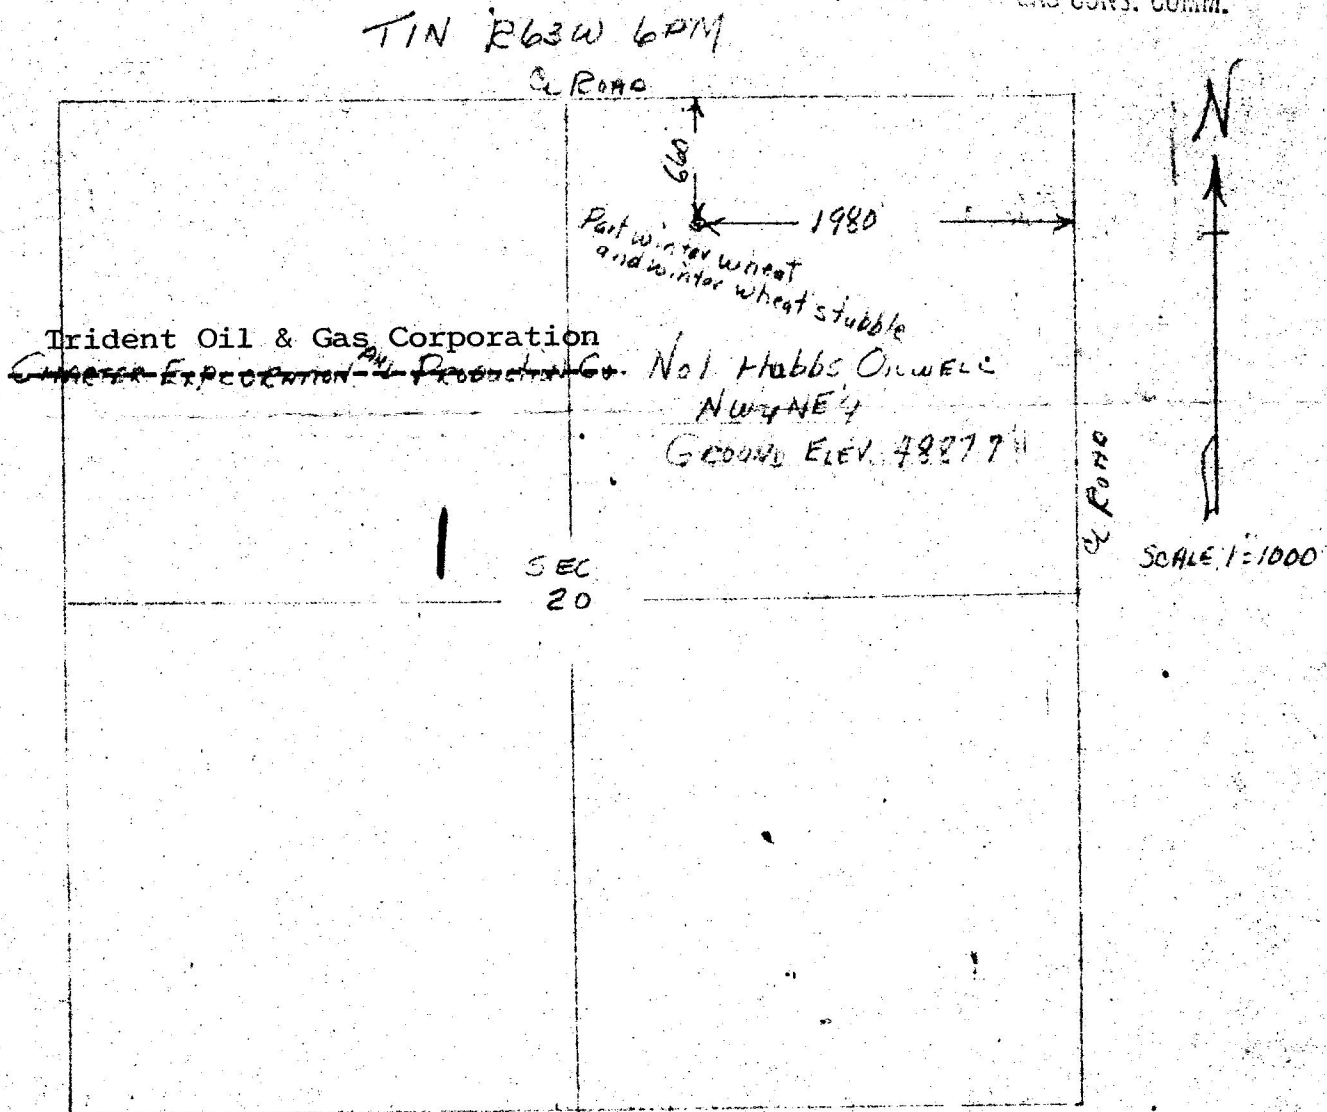 GAS CONS. COMM.
T1N R63W 6PM
℄ ROAD
660'
1980'
Part winter wheat
and winter wheat stubble
Trident Oil & Gas Corporation
CHARTER EXPLORATION AND PRODUCTION CO. No 1 Habbs OILWELL
NW¼NE¼
GROUND ELEV.
℄ ROAD
N
SCALE 1"=1000'
SEC
20